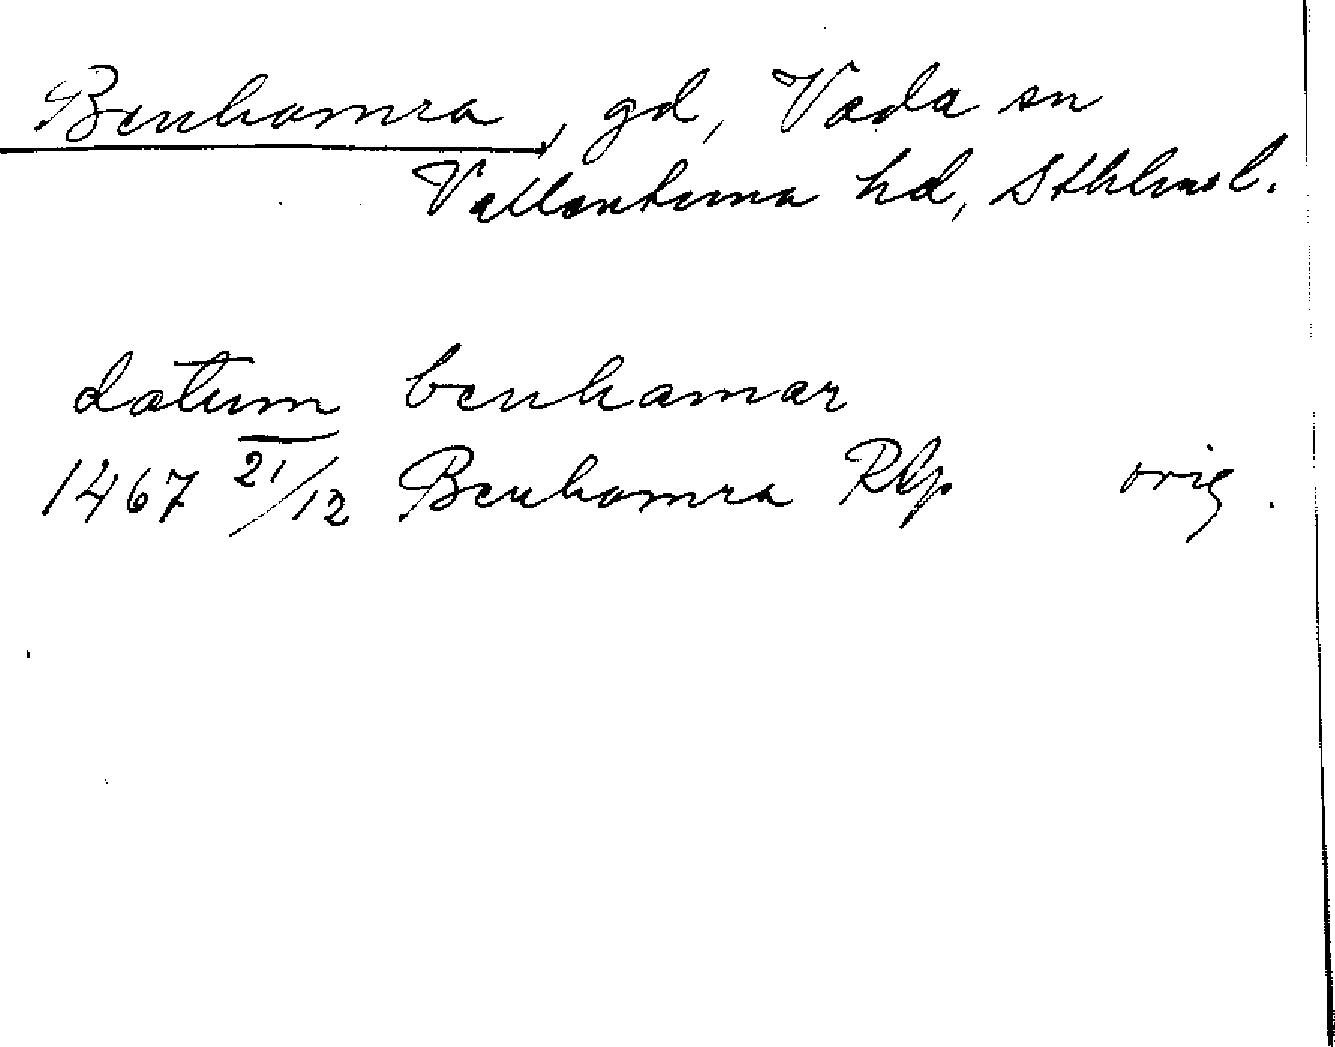 Benhamra, gd, Vada sn
Vallentuna hd, Sthlms l.
datum benhamar
1467 21/12 Benhamra Rlp orig.